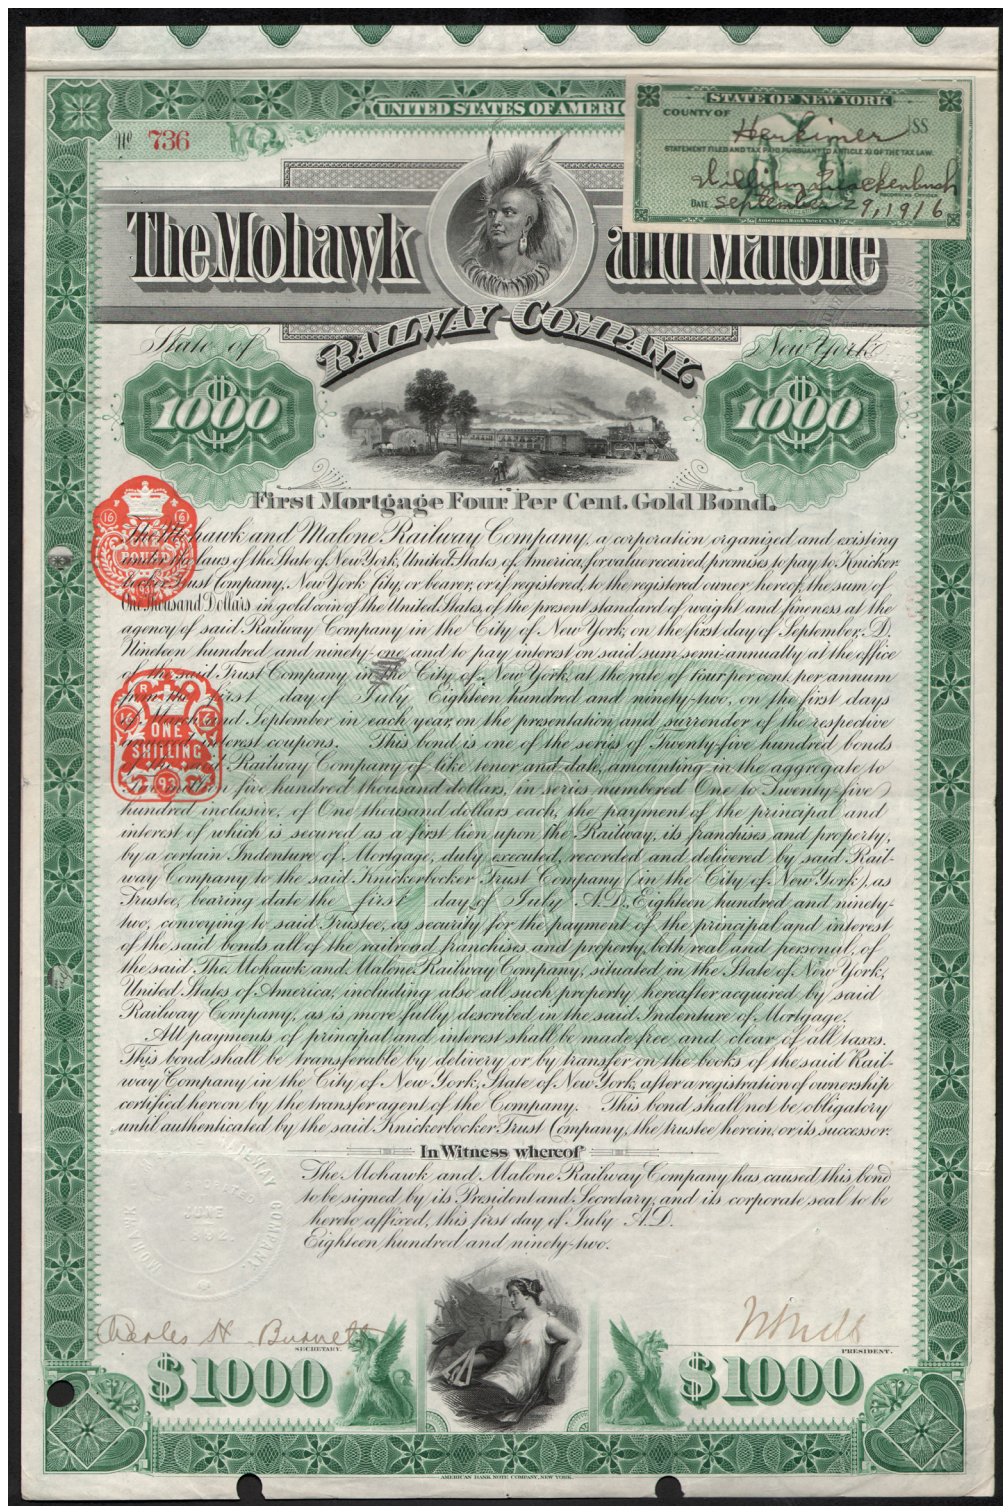 UNITED STATES OF AMERIC
STATE OF NEW YORK
COUNTY OF Herkimer SS
STATEMENT FILED AND TAX PAID PURSUANT TO ARTICLE XI OF THE TAX LAW.
RECORDING OFFICER
DATE September 29, 1916
American Bank Note Co. N.Y.
No 736
The Mohawk and Malone
RAILWAY COMPANY
State of New York
$1000 $1000
First Mortgage Four Per Cent. Gold Bond.
The Mohawk and Malone Railway Company, a corporation organized and existing
under the laws of the State of New York, United States of America, for value received, promises to pay to Knicker-
bocker Trust Company, New York City, or bearer, or if registered, to the registered owner hereof, the sum of
One Thousand Dollars in gold coin of the United States, of the present standard of weight and fineness at the
agency of said Railway Company in the City of New York, on the first day of September, A.D.
Nineteen hundred and ninety-one, and to pay interest on said sum semi-annually at the office
of the said Trust Company, in the City of New York, at the rate of four per cent. per annum
from the first day of July Eighteen hundred and ninety-two, on the first days
of March and September in each year, on the presentation and surrender of the respective
interest coupons. This bond is one of the series of Twenty-five hundred bonds
of the said Railway Company of like tenor and date, amounting in the aggregate to
Two million five hundred thousand dollars, in series numbered One to Twenty-five
hundred inclusive, of One thousand dollars each, the payment of the principal and
interest of which is secured as a first lien upon the Railway, its franchises and property,
by a certain Indenture of Mortgage, duly executed, recorded and delivered by said Rail-
way Company to the said Knickerbocker Trust Company (in the City of New York), as
Trustee, bearing date the first day of July A.D. Eighteen hundred and ninety-
two, conveying to said Trustee, as security for the payment of the principal and interest
of the said bonds all of the railroad, franchises and property, both real and personal, of
the said The Mohawk and Malone Railway Company, situated in the State of New York,
United States of America, including also all such property hereafter acquired by said
Railway Company, as is more fully described in the said Indenture of Mortgage.
All payments of principal and interest shall be made free and clear of all taxes.
This bond shall be transferable by delivery or by transfer on the books of the said Rail-
way Company in the City of New York, State of New York, after a registration of ownership
certified hereon by the transfer agent of the Company. This bond shall not be obligatory
until authenticated by the said Knickerbocker Trust Company, the trustee herein, or its successor.
POUND
16 16
ONE
SHILLING
93
In Witness whereof
The Mohawk and Malone Railway Company has caused this bond
to be signed by its President and Secretary, and its corporate seal to be
hereto affixed, this first day of July A.D.
Eighteen hundred and ninety-two.
MOHAWK RAILWAY COMPANY.
JUNE
Charles H. Burnett
SECRETARY. PRESIDENT.
$1000 $1000
AMERICAN BANK NOTE COMPANY, NEW YORK.